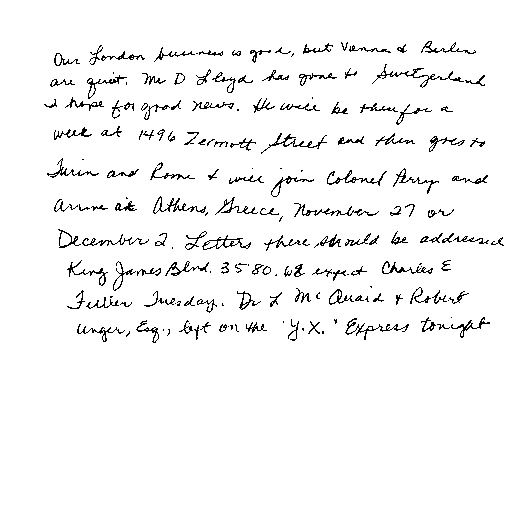 Our London business is good, but Vienna & Berlin
are quiet. Mr D Lloyd has gone to Switzerland
& hope for good news. He will be there for a
week at 1496 Zermott Street and then goes to
Turin and Rome & will join Colonel Perry and
arrive at Athens, Greece, November 27 or
December 2. Letters there should be addressed
King James Blvd. 3580. We expect Charles E
Fuller Tuesday. Dr L McQuaid & Robert
Unger, Esq., left on the "Y.X." Express tonight